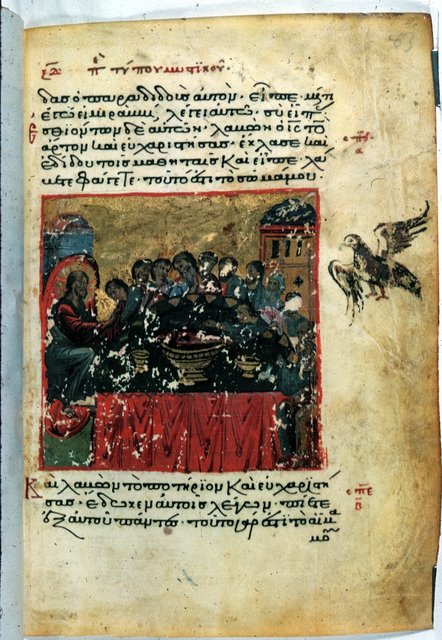 τύπου μυστικοῦ·
δας ὁ παραδιδοὺς αὐτόν· εἶπε· μήτι
ἐγώ εἰμι ῥαββί· λέγει αὐτῷ, σὺ εἶπ
Ἐσθιόντων δὲ αὐτῶν· λαβὼν ὁ ις τὸν
ἄρτον καὶ εὐχαριστήσας· ἔκλασε καὶ
ἐδίδου τοῖς μαθηταῖς καὶ εἶπε, λά
βετε φάγετε· τοῦτό ἐστι τὸ σῶμά μου·
σπδ
α
Καὶ λαβὼν τὸ ποτήριον καὶ εὐχαριστή
σας· ἔδωκεν αὐτοῖς λέγων· πίετε
ἐξ αὐτοῦ πάντες· τοῦτο γάρ ἐστι τὸ αἷμά
μου
σπε
β